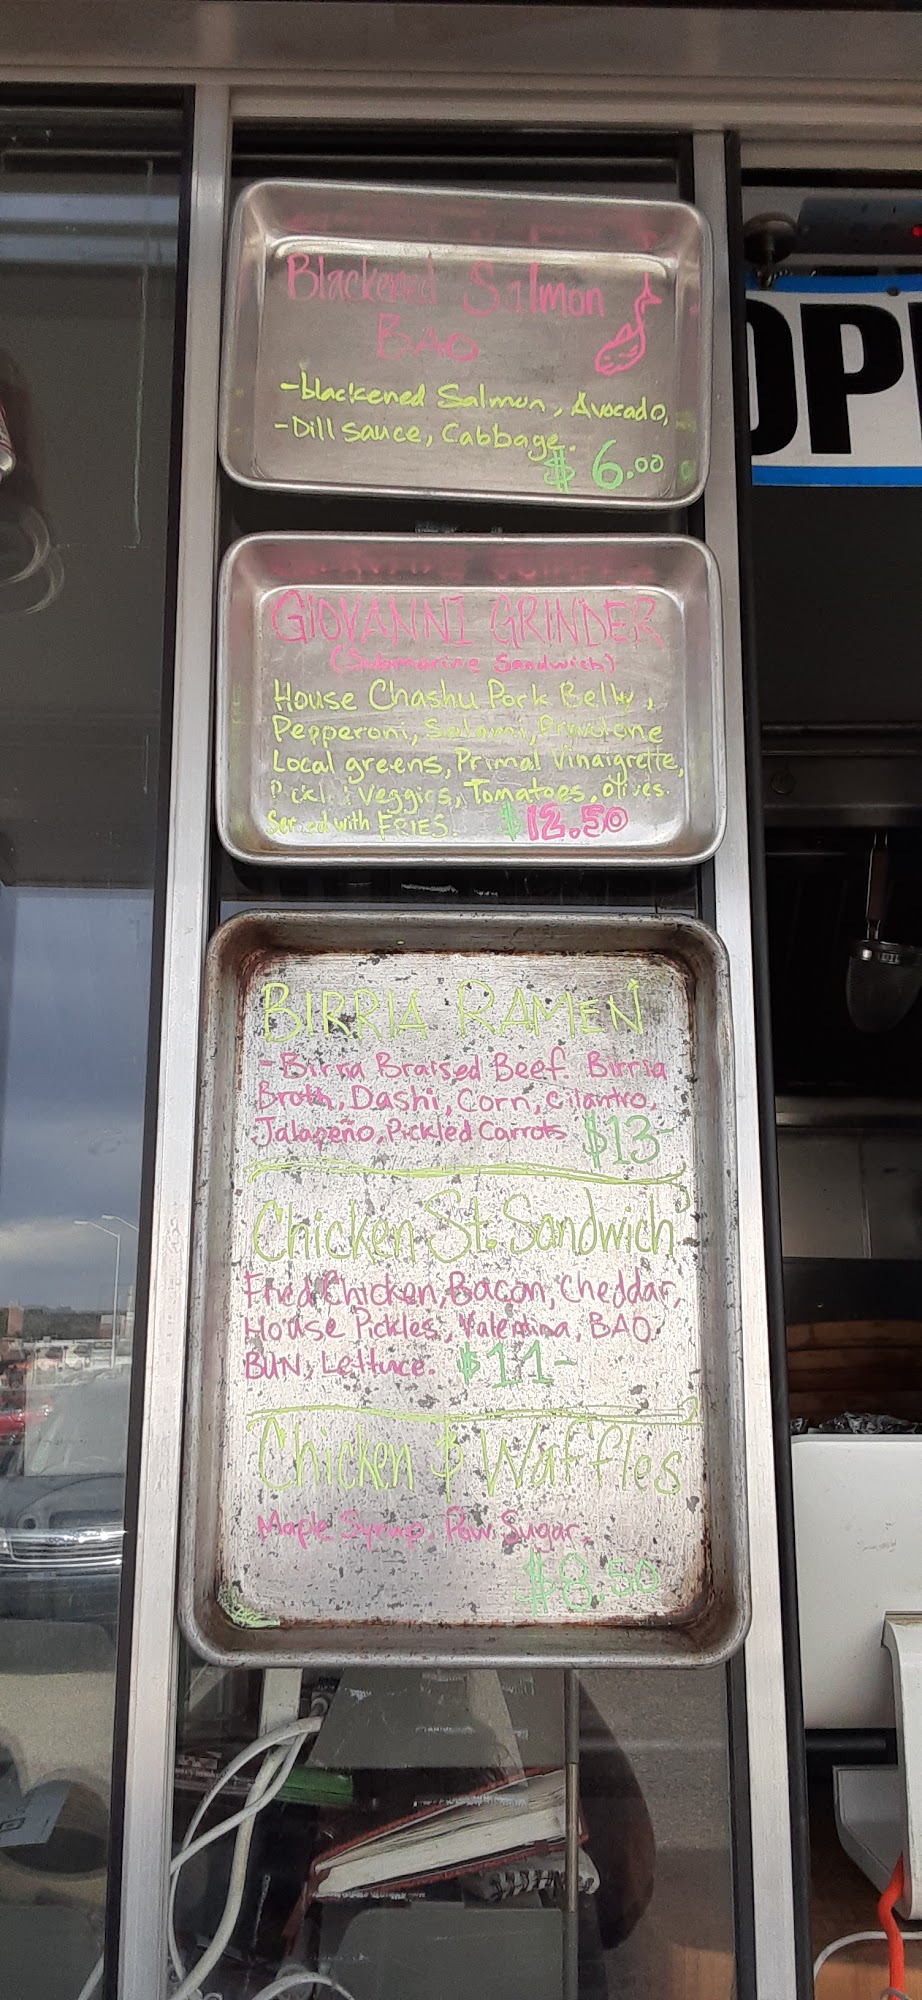 Blackened Salmon
BAO
-blackened Salmon, Avocado,
-Dill sauce, Cabbage.
$6.00
GIOVANNI GRINDER
(Submarine Sandwich)
House Chashu Pork Belly,
Pepperoni, Salami, Provolone
Local greens, Primal Vinaigrette,
Pickle Veggies, Tomatoes, olives.
Served with FRIES. $12.50
BIRRIA RAMEN
-Birria Braised Beef. Birria
Broth, Dashi, Corn, Cilantro,
Jalapeño, Pickled Carrots $13-
Chicken St. Sandwich
Fried Chicken, Bacon, Cheddar,
House Pickles, Valentina, BAO
BUN, Lettuce. $11-
Chicken & Waffles
Maple Syrup, Pow Sugar.
$8.50
OP